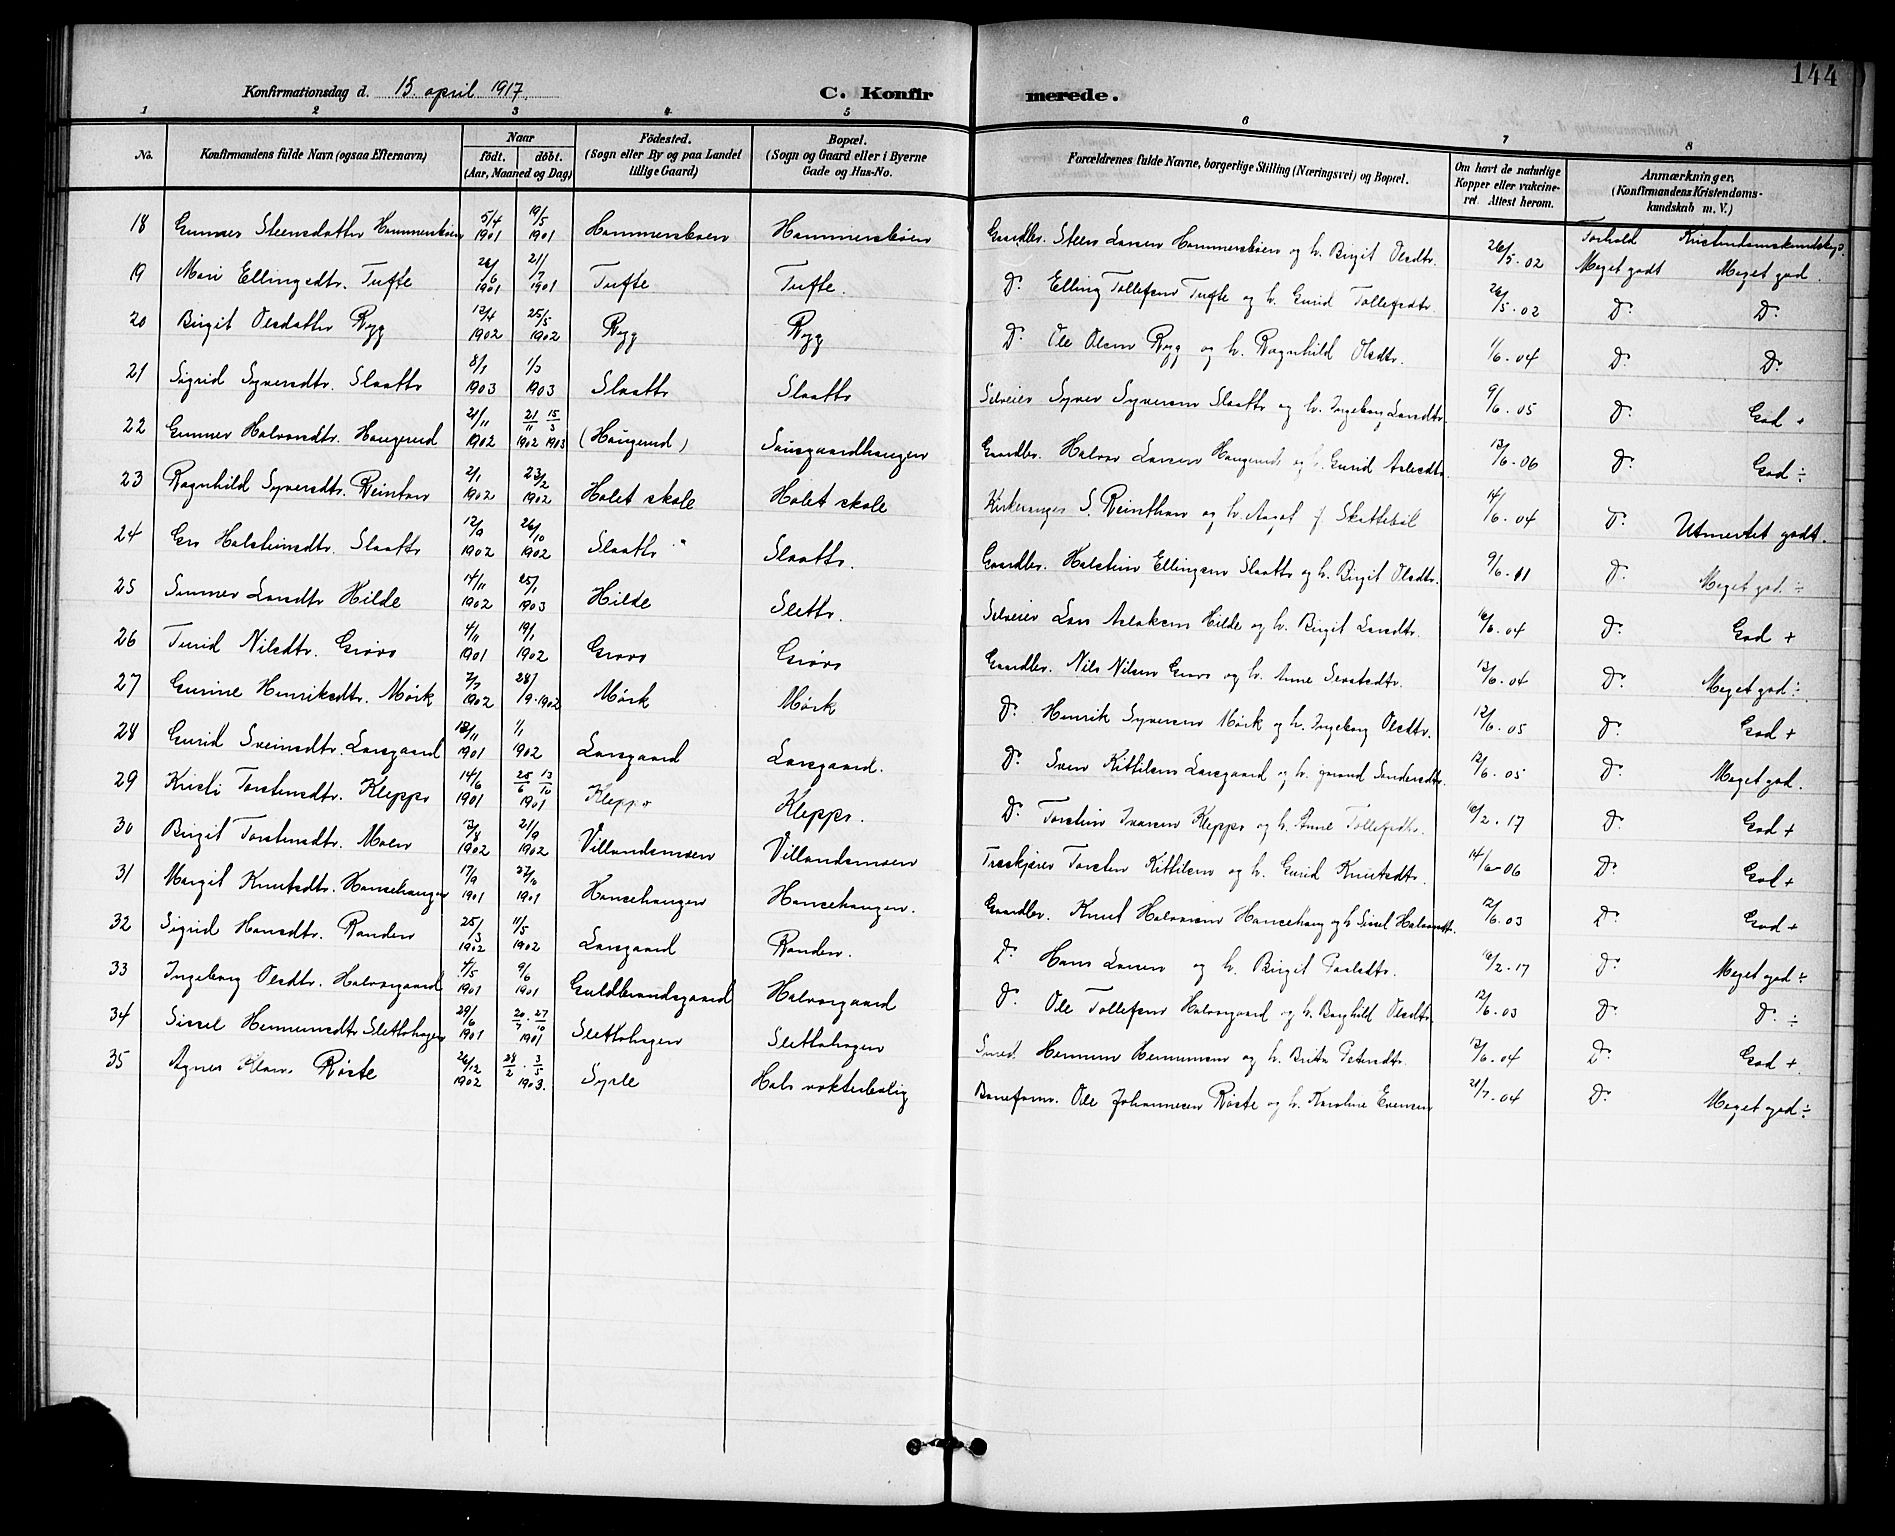 144
Konfirmationsdag d. 15. april 1917.
C. Konfirmerede.
1 2 3 4 5 6 7 8
No. Konfirmandens fulde Navn (ogsaa Efternavn) Naar födt. döbt. (Aar, Maaned og Dag) Födested. (Sogn eller By og paa Landet tillige Gaard) Bopæl. (Sogn og Gaard eller i Byerne Gade og Hus-No. Forældrenes fulde Navne, borgerlige Stilling (Næringsvei) og Bopæl. Om havt de naturlige Kopper eller vakcineret. Attest herom. Anmærkninger. (Konfirmandens Kristendomskundskab m. V.)
Forhold Kristendomskundskap.
18 Gunner Steensdatter Hammersbøen 5/4 1901 19/5 1901 Hammersbøen Hammersbøen Gaardbr. Steen Larsen Hammersbøen og h. Birgit Olsdtr. 26/5.02 Meget godt Meget god.
19 Mari Ellingsdtr. Tufte 26/6 1901 21/7 1901 Tufte Tufte. Do Elling Tollefsen Tufte og h. Gurid Tollefsdtr. 26/5.02 Do Do
20 Birgit Olsdatter Ryg 13/4 1902 25/5 1902 Ryg Ryg Do Ole Olsen Ryg og h. Ragnhild Olsdtr. 1/6.04 Do Do
21 Sigrid Syversdtr. Slaatto 8/1 1903 1/3 1903 Slaatto Slaatto Selveier Syver Syversen Slaatto og h. Ingeborg Larsdtr. 9/6.05 Do God +
22 Gunner Halvorsdtr. Haugerud 21/11 1902 21/11 1902 15/3 1903 (Haugerud) Sausgaardhaugen Gaardbr. Halvor Larsen Haugerud og h. Gurid Aslesdtr. 13/6.06 Do God ÷
23 Ragnhild Syversdtr. Reinton 2/1 1902 23/2 1902 Holet skole Holet skole Kirkesanger S. Reinthon og h. Aagot f. Skattebøl 14/6.04 Do Utmerket godt.
24 Gro Holsteinsdtr. Slaatto 12/9 1902 26/10 1902 Slaatto Slaatto. Gaardbr. Holstein Ellingsen Slaatto og h. Birgit Olsdtr. 9/6.11 Do Meget god. ÷
25 Sunner Larsdtr Hilde 14/11 1902 25/1 1903 Hilde Sletto. Selveier Lars Aslaksen Hilde og h. Birgit Larsdtr. 16/6.04 Do God +
26 Turid Nilsdtr. Grøvo 4/11 1901 19/1 1902 Grøvo Grøvo Gaardbr. Nils Nilsen Grøvo og h. Anne Sevatsdtr. 13/6.04 Do Meget god ÷
27 Gurine Henriksdtr. Mørk 7/3 1902 28/9.1902 Mørk Mørk Do Henrik Syversen Mørk og h. Ingeborg Olsdtr. 12/6.05 Do God +
28 Gurid Sveinsdtr. Larsgaard 18/11 1901 1/1 1902 Larsgaard Larsgaard. Do Svein Kittilsen Larsgaard og h. Sandersdtr. 12/6.05 Do Meget god.
29 Kristi Torsteinsdtr. Kleppo 14/6 1901 25/6 13/10 1901 Kleppo Kleppo. Do Torstein Ivarsen Kleppo og h. Anne Tollefsdtr. 16/2.17 Do God +
30 Birgit Torsteinsdtr. Moen 13/8 1902 21/9 1902 Villandsmoen Villandsmoen Træskjærer Torstein Kittilsen og h. Gurid Knutsdtr. 14/6-06 Do God +
31 Margit Knutsdtr. Hansehaugen 17/9 1901 1901 Hansehaugen Hansehaugen. Gaardbr. Knut Halvorsen Hansehaug og h Sissel Halvorsdtr. 12/6.03 Do God +
32 Sigrid Hansdtr. Randen 25/3 1902 11/5 1902 Larsgaard Randen. Do Hans Larsen og h. Birgit Paalsdtr. 16/2.17 Do Meget god ÷
33 Ingeborg Olsdtr. Halvorgaard 4/5 1901 9/6 1901 Guldbrandsgaard Halvorsgaard Do Ole Tollefsen Halvorsgaard og h. Borghild Olsdtr. 12/6.03 Do Do ÷
34 Sissel Hermundsdtr Slettohagen 29/6 1901 20/7 . 27/10 1901 Slettohagen Slettohagen Smed. Hermun Hermunsen og h. Brita Petersdtr. 13/6.04 Do God +
35 Agnes Røste 26/12 1902 28/2 . 3/5 1903. Syrle Hols vokterbolig Baneform. Ole Johannesen Røste og h. Karoline Evensen 21/7.04 Do Meget god ÷